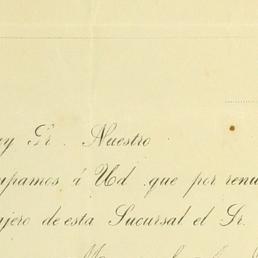 y Sr. Nuestro
upamos á Ud. que por renu
ajero de esta Sucursal el Sr.